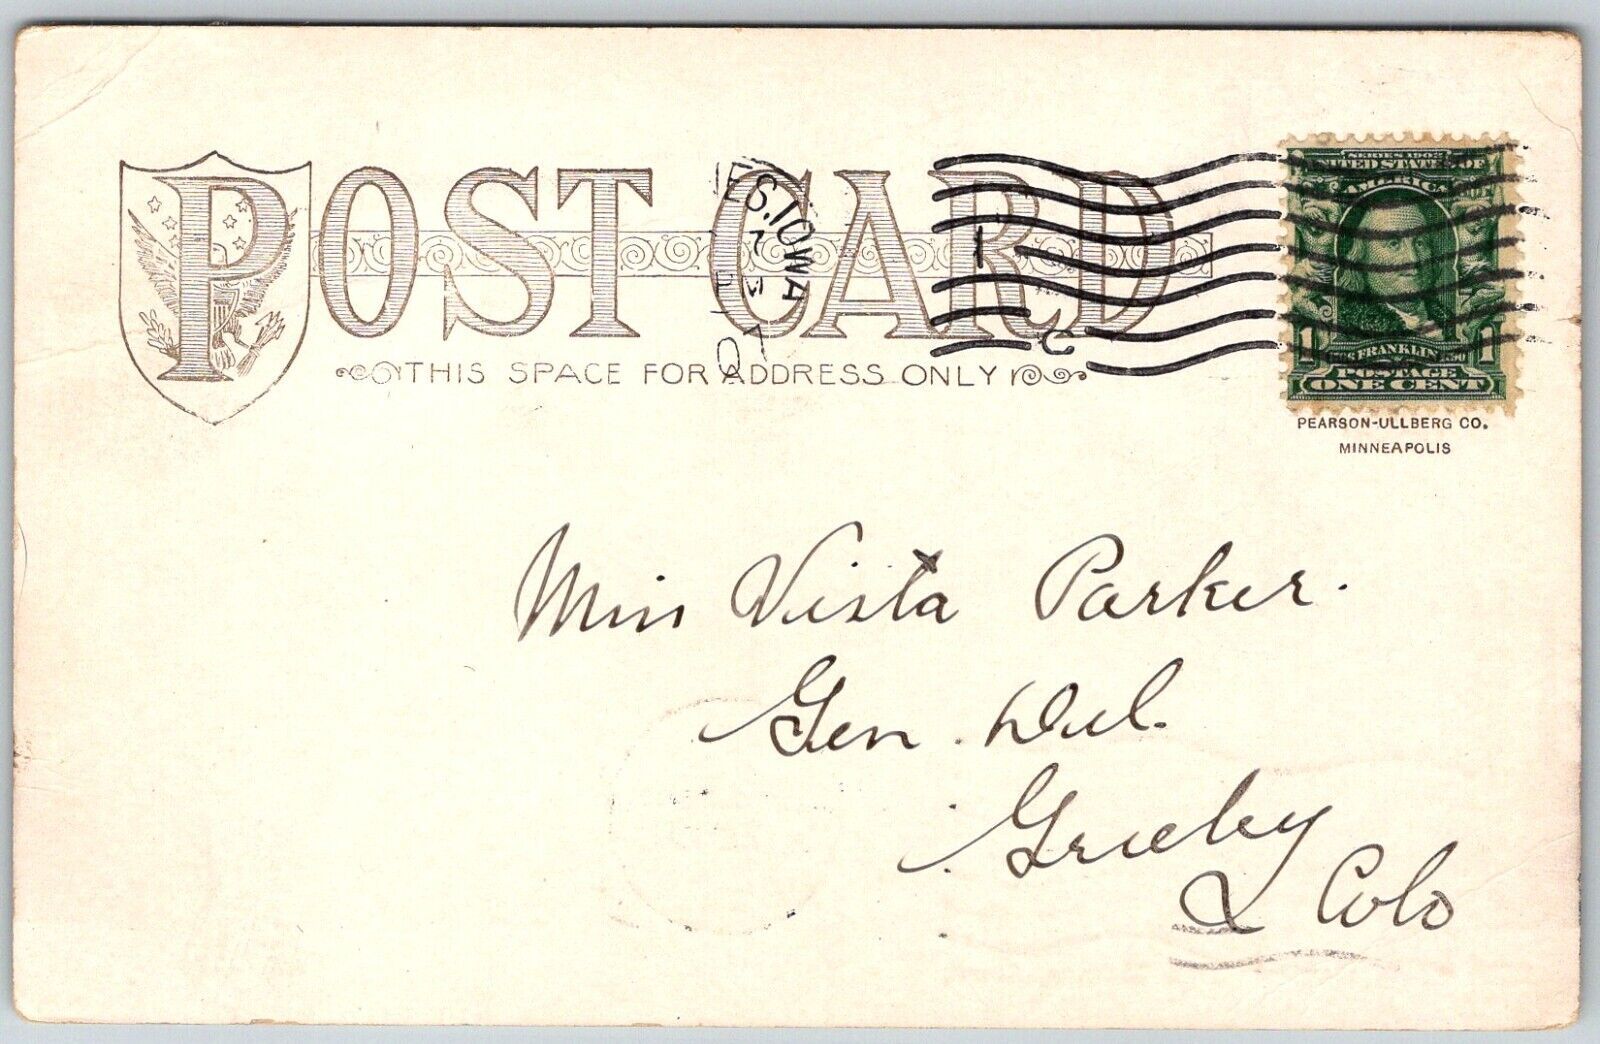 POST CARD
THIS SPACE FOR ADDRESS ONLY
ES. IOWA
SERIES 1902
UNITED STATES OF
AMERICA
FRANKLIN
POSTAGE
1 1
ONE CENT
PEARSON-ULLBERG CO.
MINNEAPOLIS
Miss Vista Parker.
Gen. Del.
Greeley
Colo